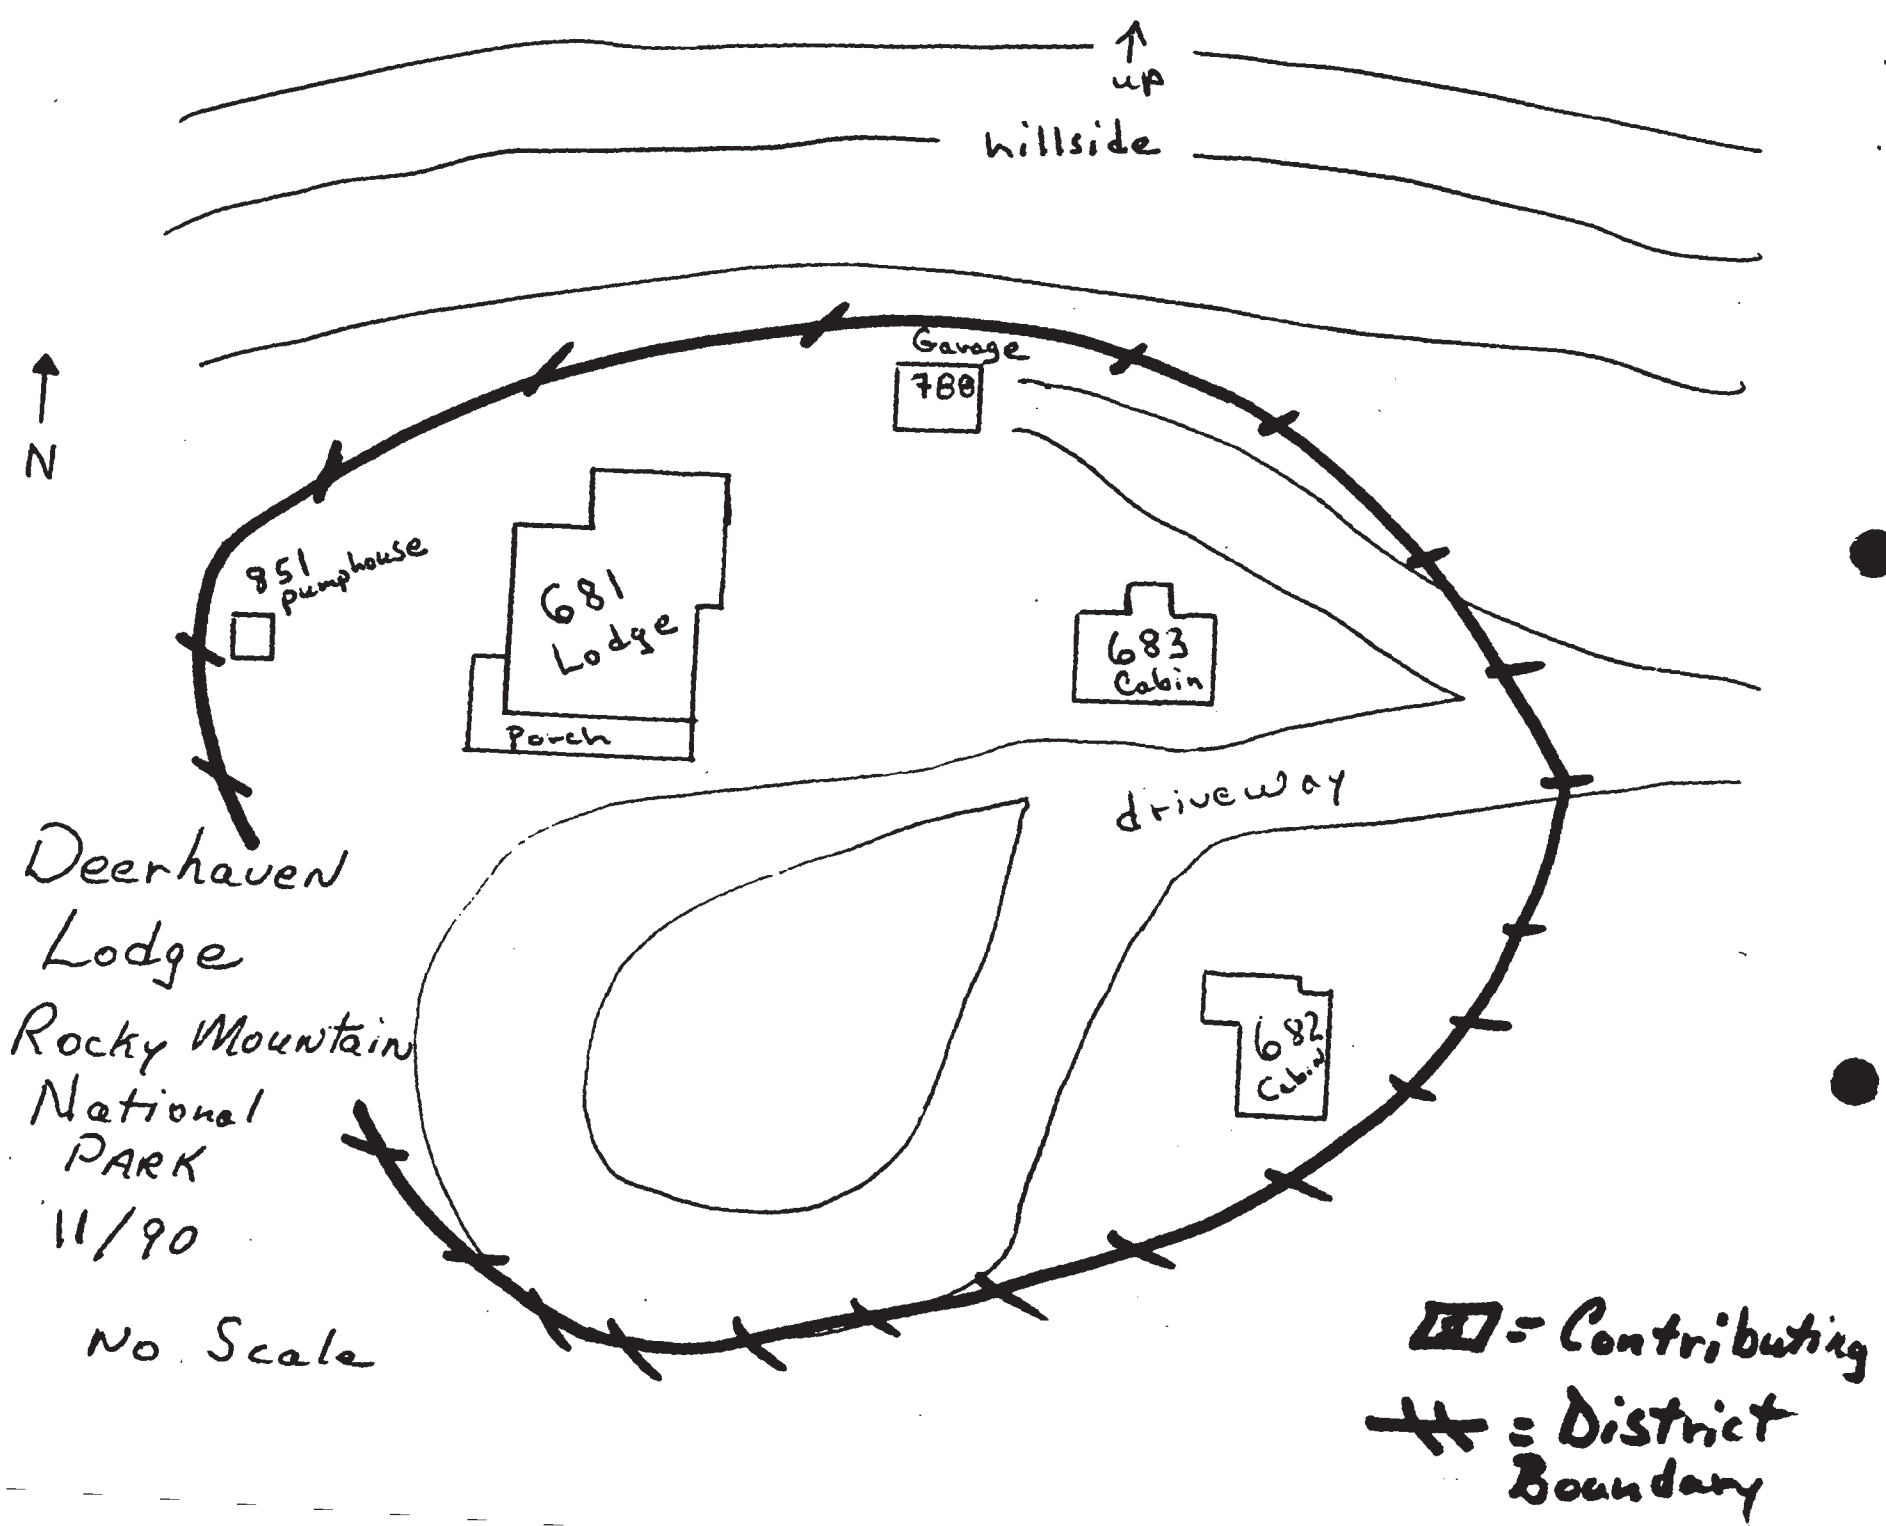 ↑
up
hillside
Garage
788
↑
N
851
pumphouse
681
Lodge
Porch
683
Cabin
driveway
682
Cabin
Deerhaven
Lodge
Rocky Mountain
National
PARK
11/90
No Scale
= Contributing
= District
Boundary